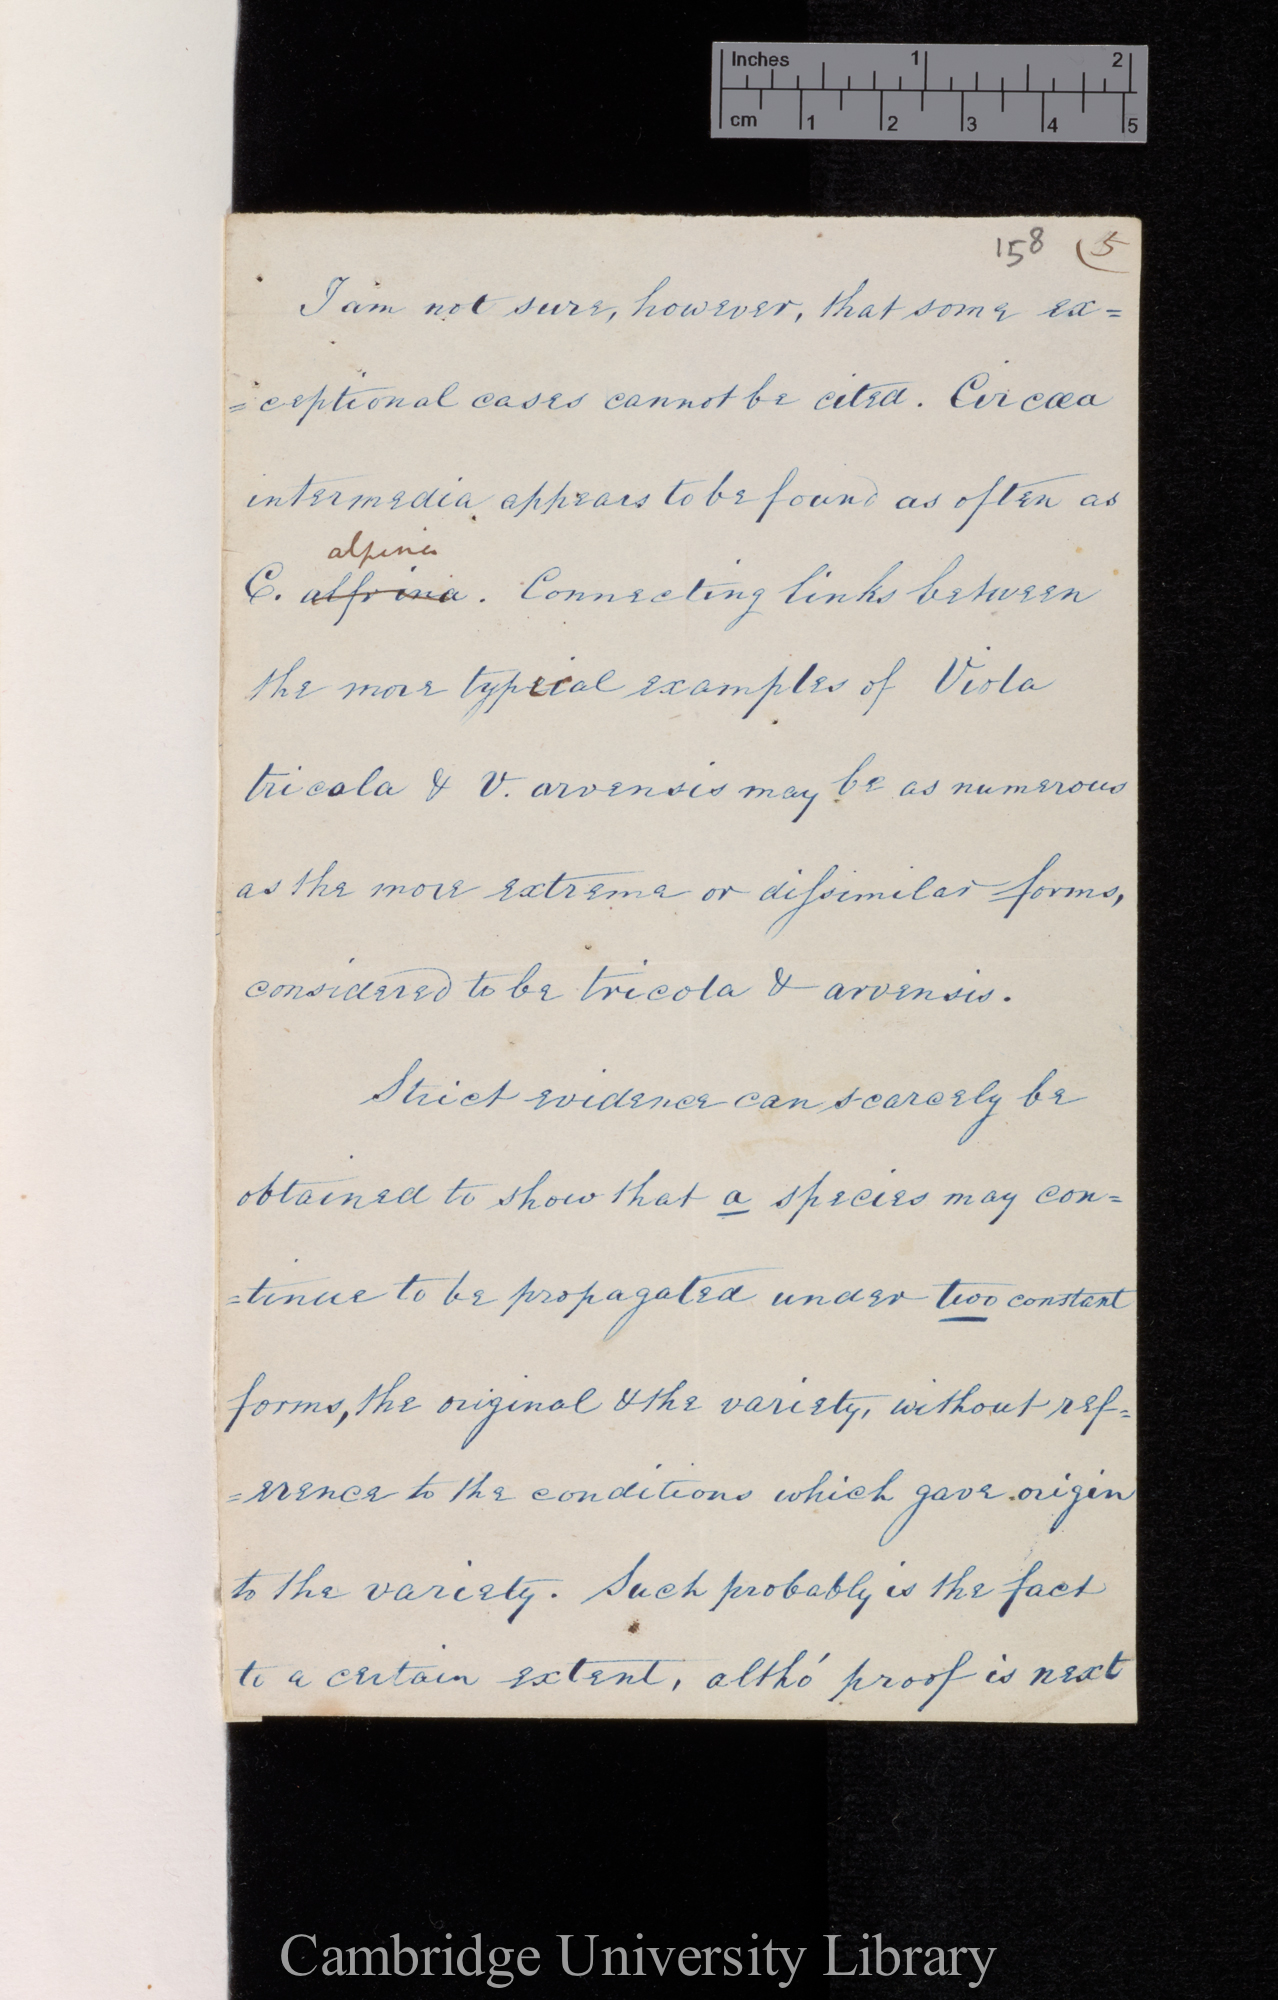 Inches 1 2
cm 1 2 3 4 5
158 (5
I am not sure, however, that some ex=
=ceptional cases cannot be cited. Circæa
intermedia appears to be found as often as
alpina
C. alfrina. Connecting links between
the more typical examples of Viola
tricola & V. arvensis may be as numerous
as the more extreme or difsimilar forms,
considered to be tricola & arvensis.
Strict evidence can scarcely be
obtained to show that a species may con=
=tinue to be propagated under two constant
forms, the original & the variety, without ref=
=erence to the conditions which gave origin
to the variety. Such probably is the fact
to a certain extent, altho' proof is next
Cambridge University Library